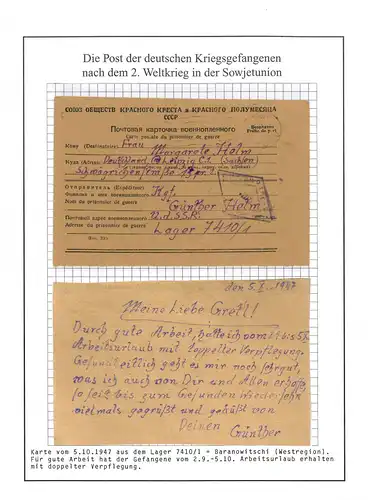 Die Post der deutschen Kriegsgefangenen
nach dem 2. Weltkrieg in der Sowjetunion
СОЮЗ ОБЩЕСТВ КРАСНОГО КРЕСТА и КРАСНОГО ПОЛУМЕСЯЦА
СССР
Почтовая карточка военнопленного
Carte postale du prisonnier de guerre
Бесплатно
Franc de port
Кому (Destinataire) Frau Margarete Holm
Куда (Adresse) Deutschland, Leipzig C1 (Sachsen)
Отправитель (Expéditeur)
Фамилия и имя военнопленного Kgf.
Nom du prisonnier de guerre Günther Holm
Почтовый адрес военнопленного U.d.S.S.R.
Adresse du prisonnier de guerre Lager 7410/1
den 5.X.1947
Meine Liebe Gretl!
Durch gute Arbeit, hatte ich vom bis 5.
Arbeitsurlaub mit doppelter Verpflegung.
Gesundheitlich geht es mir noch sehr gut,
was ich auch von Dir und Allen erhoffe
so seit bis zum Gesunden Wiedersehn
vielmals gegrüßt und geküßt von
Deinen
Günther
Karte vom 5.10.1947 aus dem Lager 7410/1 = Baranowitschi (Westregion).
Für gute Arbeit hat der Gefangene vom 2.9.-5.10. Arbeitsurlaub erhalten
mit doppelter Verpflegung.